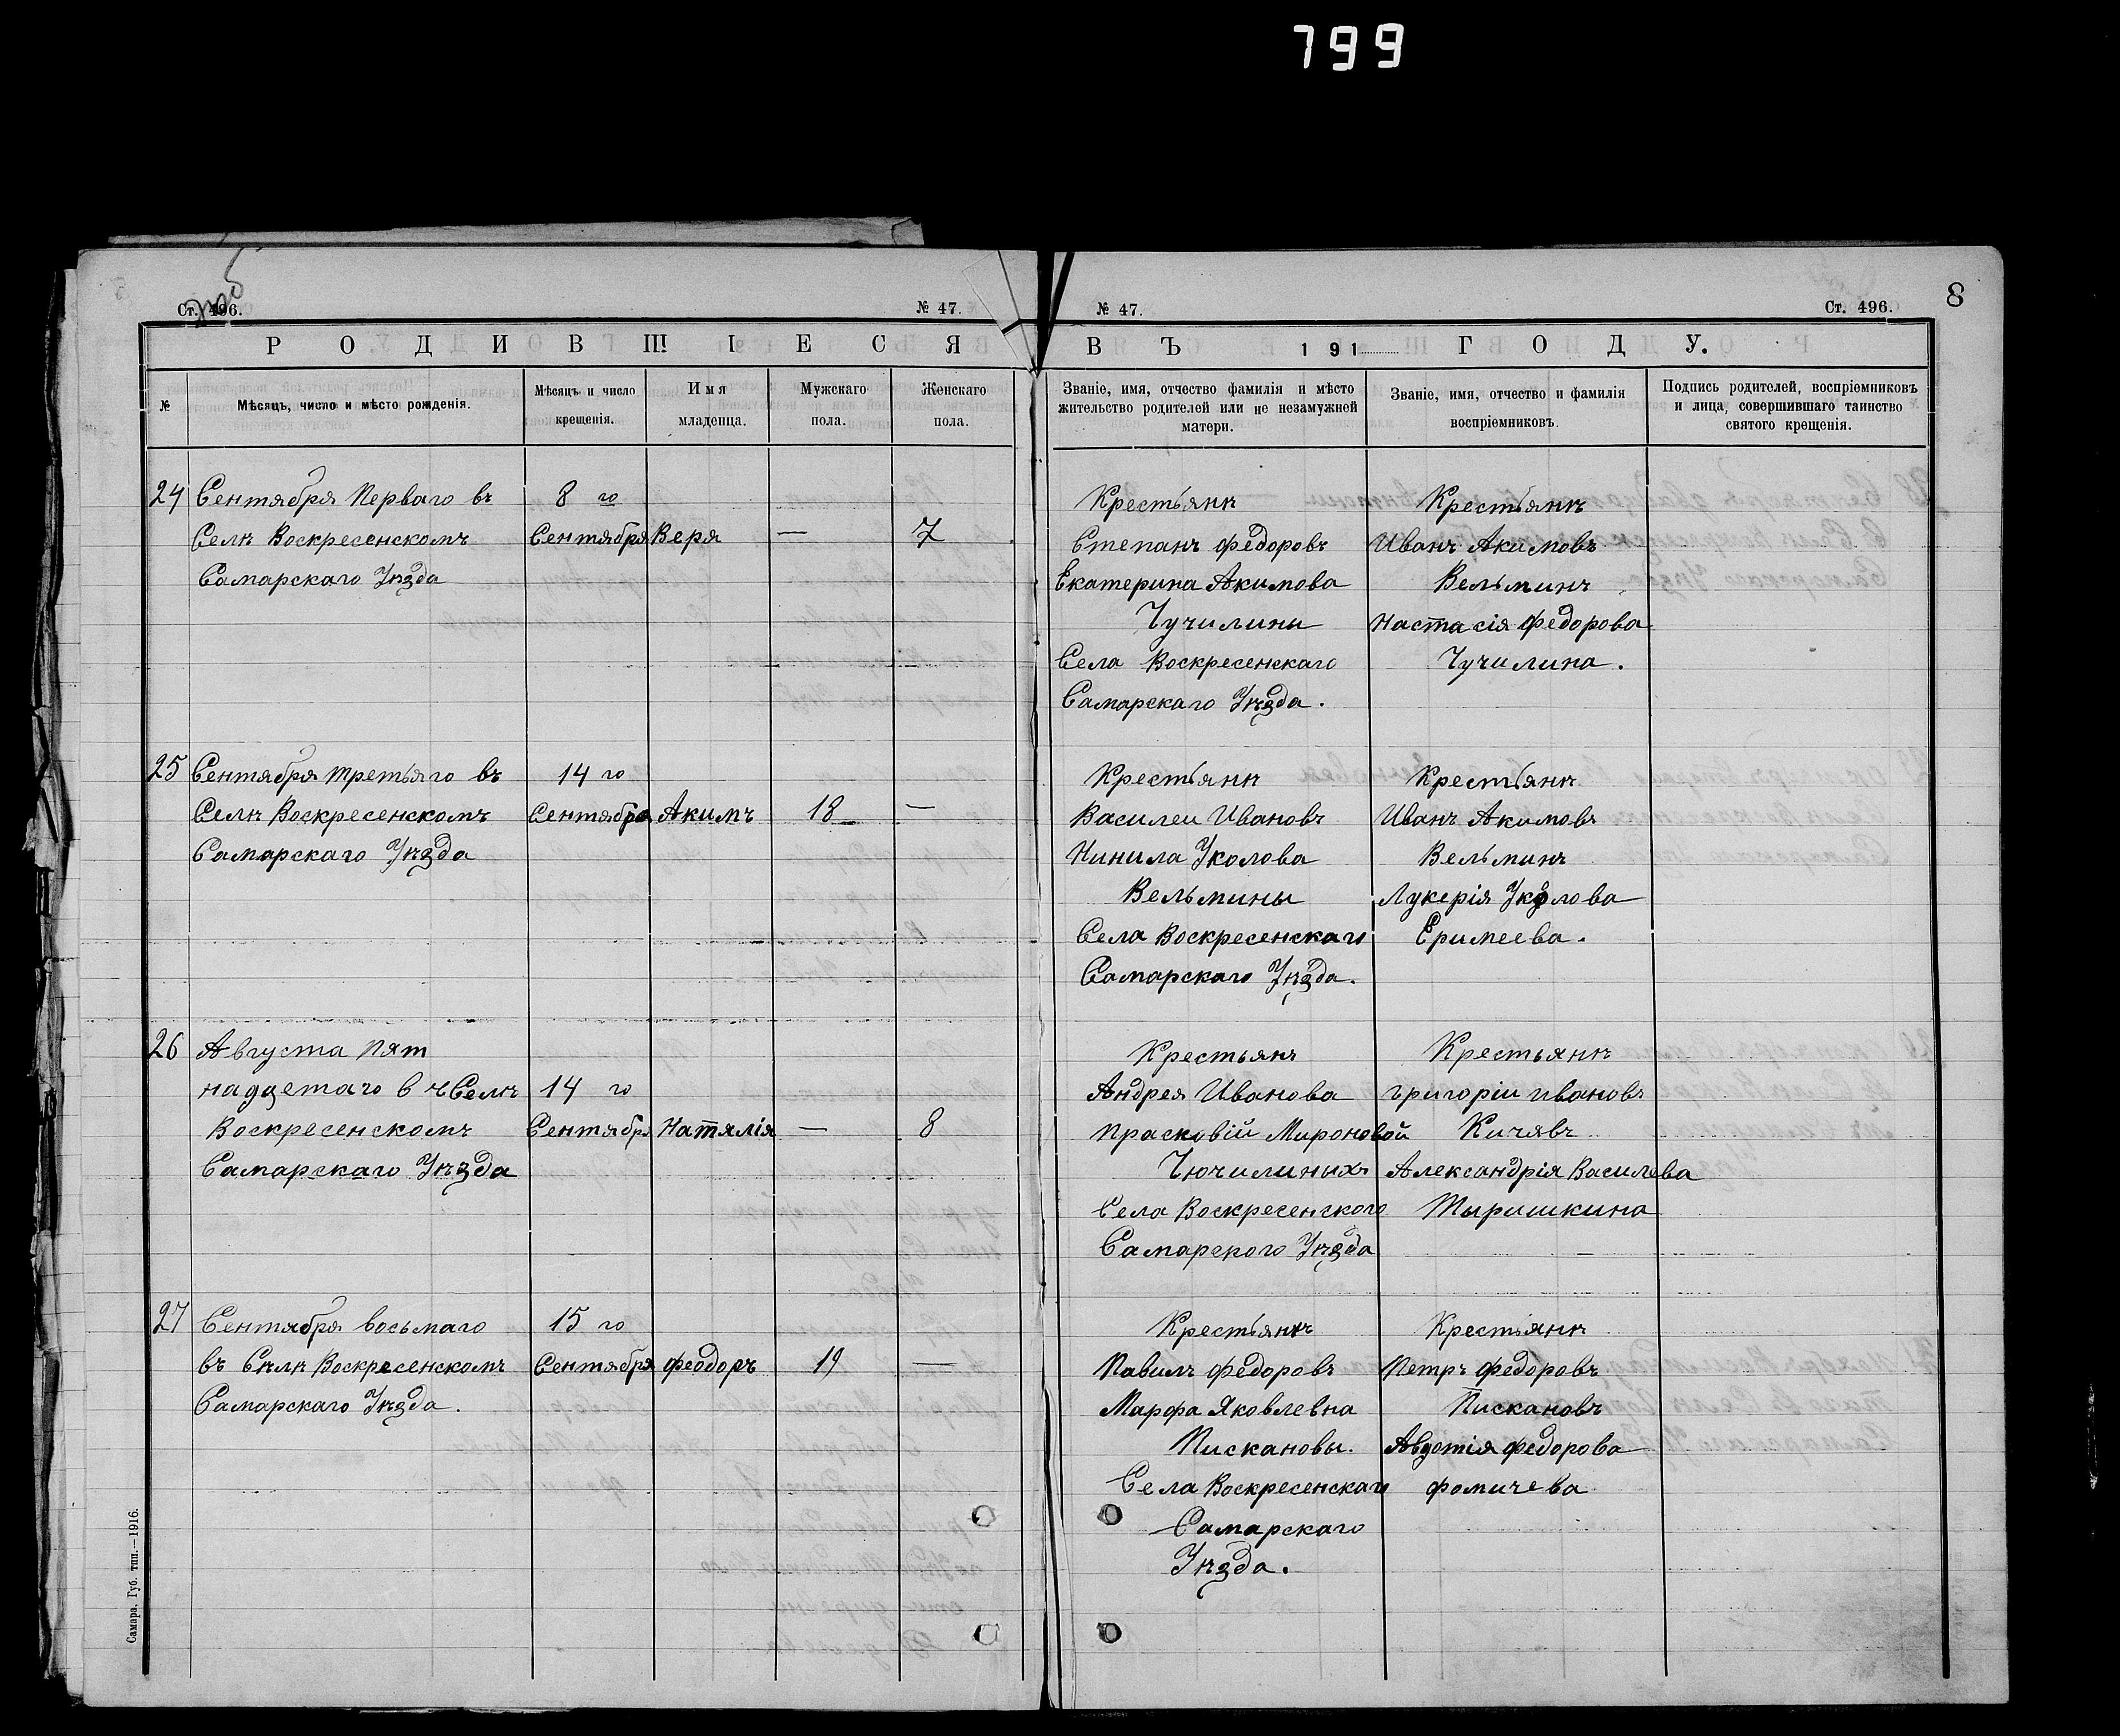 799
8
Ст. 496.
№ 47.
№ 47.
Ст. 496.
РОДИВШІЕСЯ
ВЪ 191 ГОДУ.
№
Мѣсяцъ, число и мѣсто рожденія.
Мѣсяцъ и число
крещенія.
Имя
младенца.
Мужскаго
пола.
Женскаго
пола.
Званіе, имя, отчество фамилія и мѣсто
жительство родителей или не незамужней
матери.
Званіе, имя, отчество и фамилія
воспріемниковъ.
Подпись родителей, воспріемниковъ
и лица, совершившаго таинство
святого крещенія.
24
Сентября Перваго въ
Селѣ Воскресенскомъ
Самарскаго Уѣзда
8 го
Сентября
Веря
—
7
Крестьянѣ
Степанъ Федоровъ
Екатерина Акимова
Чучилины
Села Воскресенскаго
Самарскаго Уѣзда.
Крестьянѣ
Иванъ Акимовъ
Вельминъ
Настасія Федорова
Чучилина.
25
Сентября третьяго въ
Селѣ Воскресенскомъ
Самарскаго Уѣзда
14 го
Сентября
Акимъ
18
—
Крестьянѣ
Василеи Ивановъ
Нинила Уколова
Вельмины
Села Воскресенскаго
Самарскаго Уѣзда.
Крестьянѣ
Иванъ Акимовъ
Вельминъ
Лукерія Уколова
Еримеева.
26
Августа Пят
надцетаго въ Селѣ
Воскресенскомъ
Самарскаго Уѣзда
14 го
Сентября
Наталія
—
8
Крестьянъ
Андрея Иванова
Прасковій Мироновой
Чючилиныхъ
Села Воскресенского
Самарского Уѣзда
Крестьянѣ
Григоріи Ивановъ
Кичявъ
Александрія Василева
Тыришкина
27
Сентября восьмаго
въ Сѣлѣ Воскресенскомъ
Самарскаго Уѣзда.
15 го
Сентября
Феодоръ
19
—
Крестьянѣ
Павилъ Федоровъ
Марфа Яковлевна
Пискановы.
Села Воскресенскаго
Самарскаго
Уѣзда.
Крестьянѣ
Петръ Федоровъ
Пискановъ
Авдотія Федорова
Фомичева
Самара, Губ. тип.—1916.